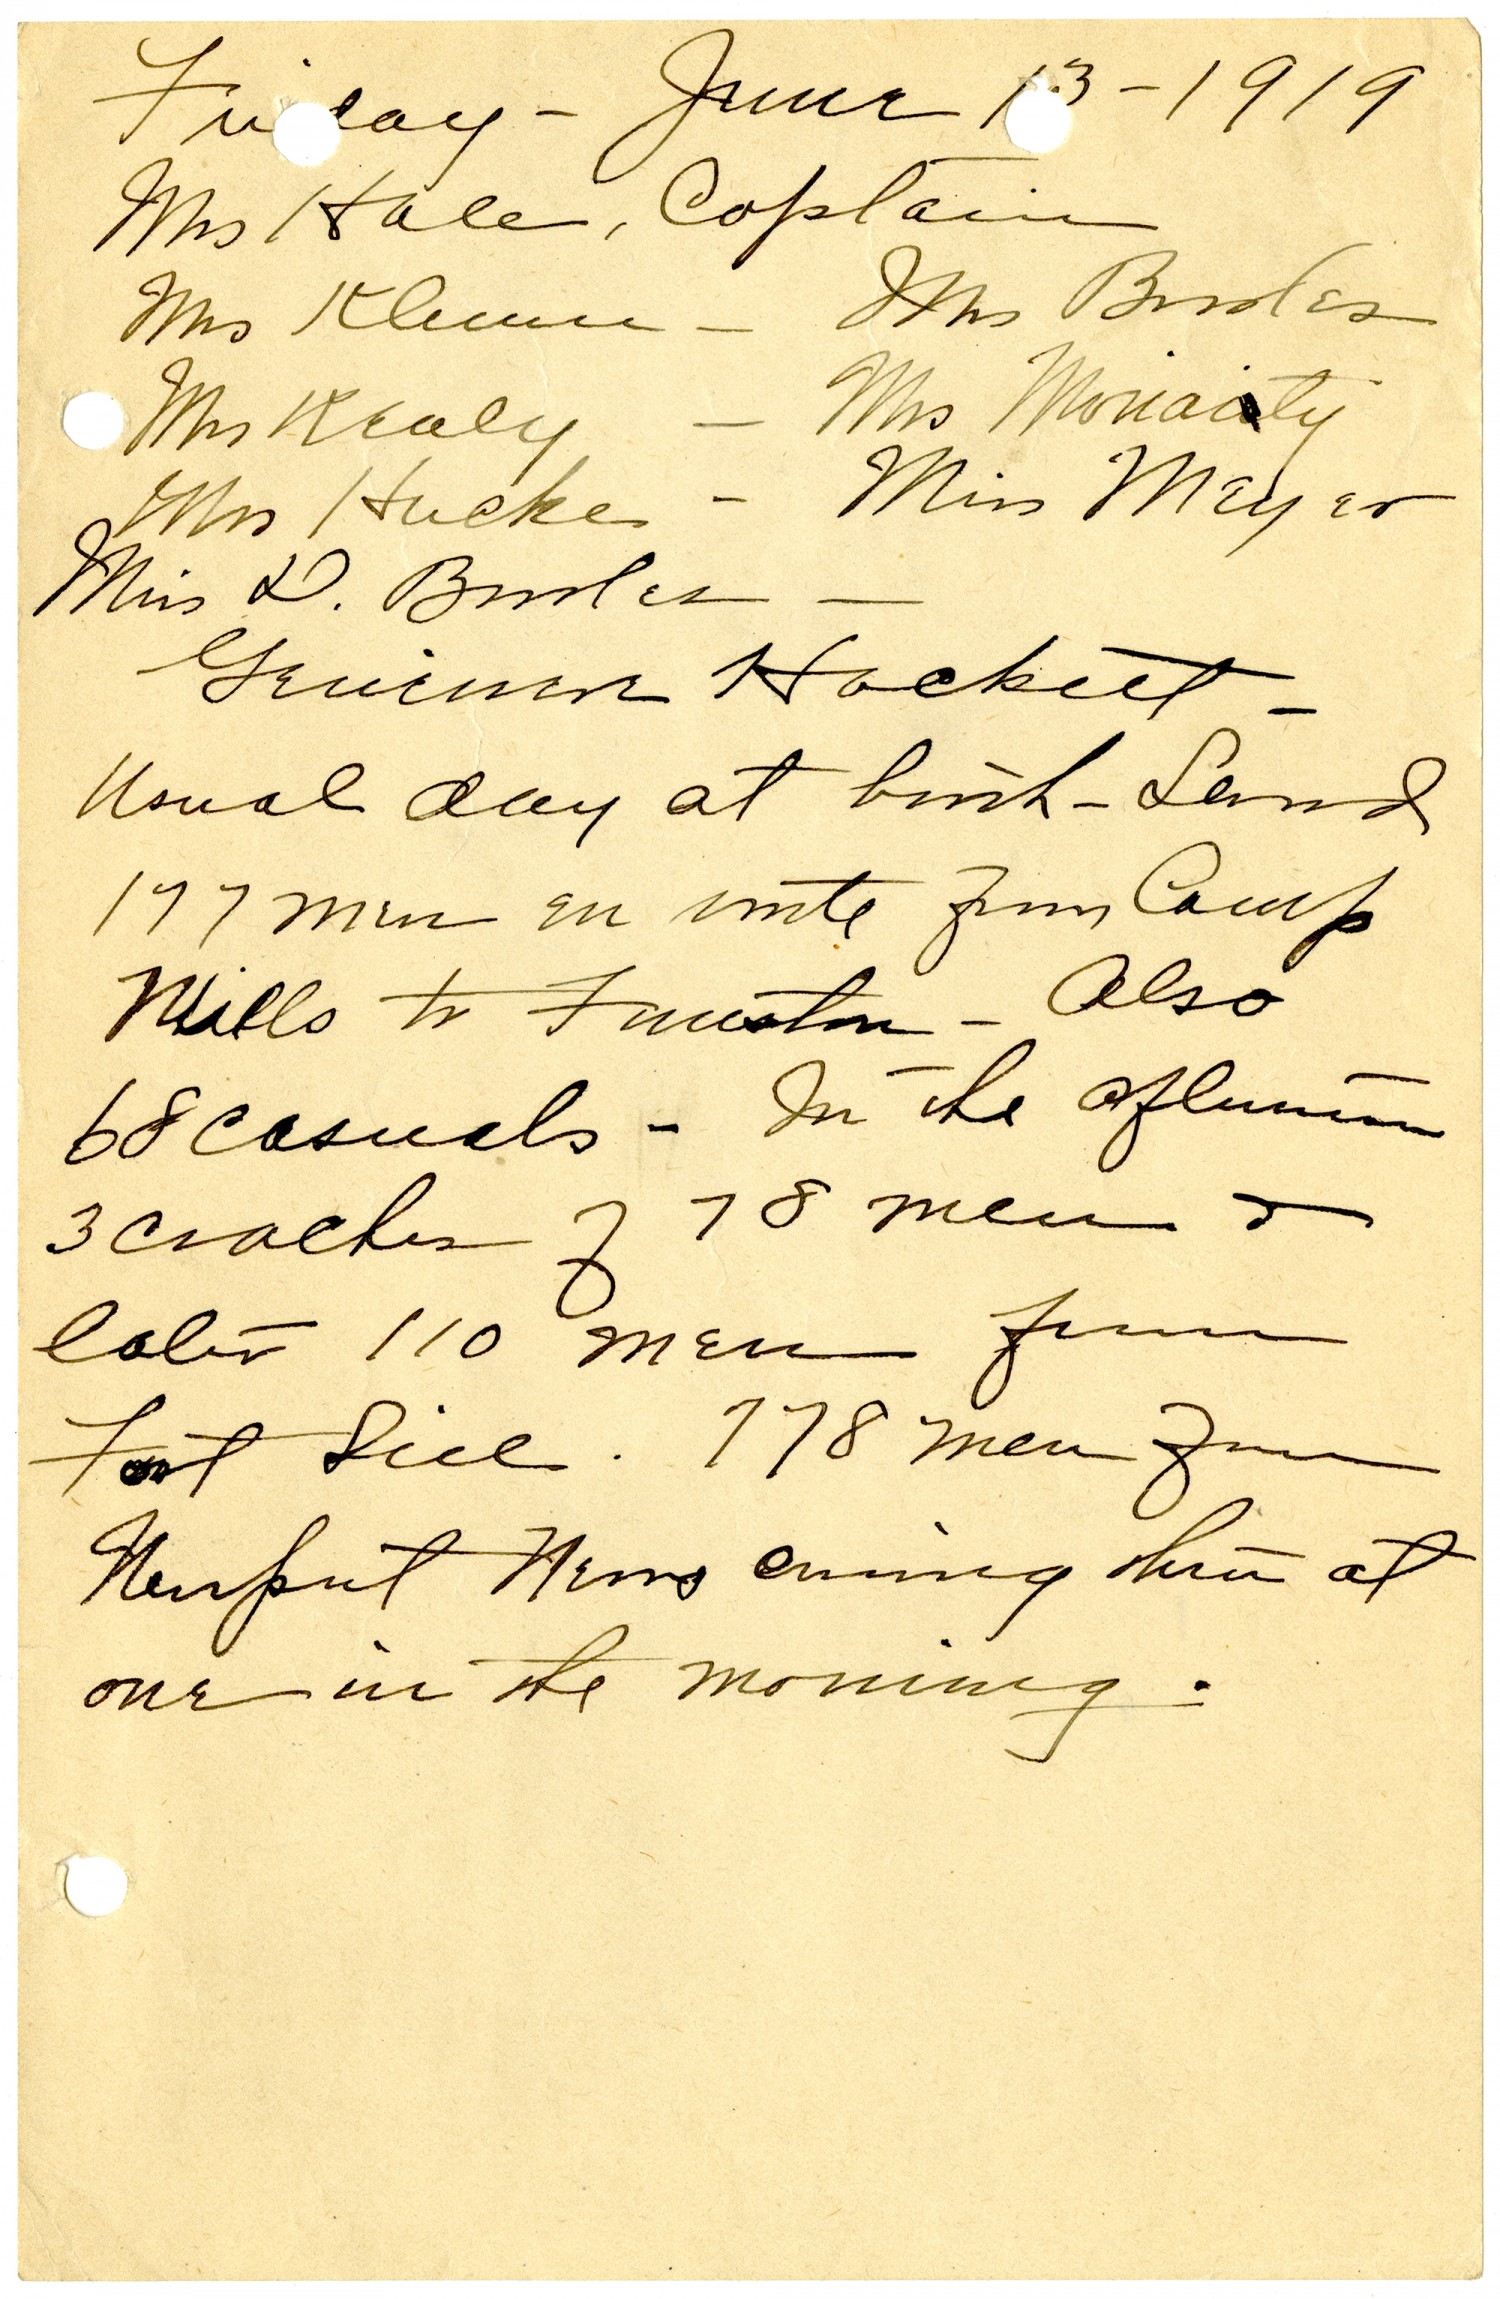 Friday - June 13 - 1919
Mrs Hall, Captain
Mrs Klemm - Mrs
Mrs Kealy - Mrs Moriarity
Mrs Hucke - Miss Meyer
Miss D.
Genieve Hackett -
Usual day at booth - Served
177 men en route from Camp
Mills to Funston - Also
68 casuals - In the afternoon
3 coaches of 78 men &
later 110 men from
Fort Sill. 778 men from
Newport News coming thru at
one in the morning.